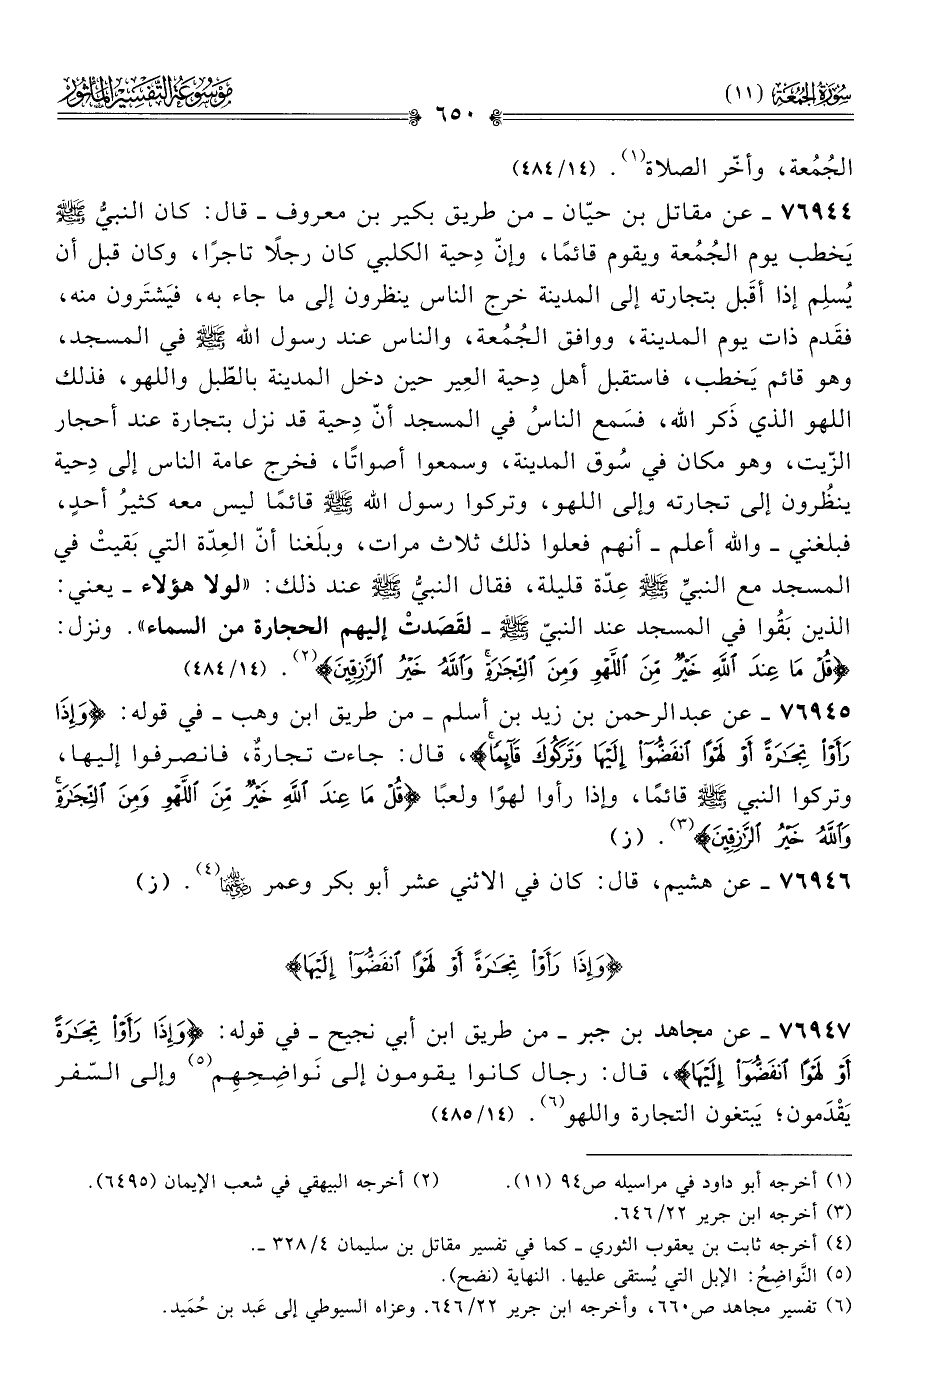 سُورَةُ الجُمُعَة (١١)
مَوْسُوعَة التَّفْسِيرِ المَأْثُور
٦٥٠
الجُمُعة، وأخّر الصلاة(١). (٤٨٤/١٤)
٧٦٩٤٤ ـ عن مقاتل بن حيّان ـ من طريق بكير بن معروف ـ قال: كان النبيُّ ﷺ
يَخطب يوم الجُمُعة ويقوم قائمًا، وإنّ دِحية الكلبي كان رجلًا تاجرًا، وكان قبل أن
يُسلِم إذا أقبَل بتجارته إلى المدينة خرج الناس ينظرون إلى ما جاء به، فيَشتَرون منه،
فقَدم ذات يوم المدينة، ووافق الجُمُعة، والناس عند رسول الله ﷺ في المسجد،
وهو قائم يَخطب، فاستقبل أهل دِحية العِير حين دخل المدينة بالطّبل واللهو، فذلك
اللهو الذي ذَكر الله، فسَمع الناسُ في المسجد أنّ دِحية قد نزل بتجارة عند أحجار
الزّيت، وهو مكان في سُوق المدينة، وسمعوا أصواتًا، فخرج عامة الناس إلى دِحية
ينظُرون إلى تجارته وإلى اللهو، وتركوا رسول الله ﷺ قائمًا ليس معه كثيرُ أحدٍ،
فبلغني ـ والله أعلم ـ أنهم فعلوا ذلك ثلاث مرات، وبلَغنا أنّ العِدّة التي بَقيتْ في
المسجد مع النبيِّ ﷺ عِدّة قليلة، فقال النبيُّ ﷺ عند ذلك: «لولا هؤلاء ـ يعني:
الذين بَقُوا في المسجد عند النبيّ ﷺ ـ لقَصَدتْ إليهم الحجارة من السماء». ونزل:
﴿قُلْ مَا عِندَ ٱللَّهِ خَيْرٌ مِّنَ ٱللَّهْوِ وَمِنَ ٱلتِّجَٰرَةِۚ وَٱللَّهُ خَيْرُ ٱلرَّٰزِقِينَ﴾(٢). (٤٨٤/١٤)
٧٦٩٤٥ ـ عن عبدالرحمن بن زيد بن أسلم ـ من طريق ابن وهب ـ في قوله: ﴿وَإِذَا
رَأَوْا۟ تِجَٰرَةً أَوْ لَهْوًا ٱنفَضُّوٓا۟ إِلَيْهَا وَتَرَكُوكَ قَآئِمًاۚ﴾، قال: جاءت تجارةٌ، فانصرفوا إليها،
وتركوا النبي ﷺ قائمًا، وإذا رأوا لهوًا ولعبًا ﴿قُلْ مَا عِندَ ٱللَّهِ خَيْرٌ مِّنَ ٱللَّهْوِ وَمِنَ ٱلتِّجَٰرَةِۚ
وَٱللَّهُ خَيْرُ ٱلرَّٰزِقِينَ﴾(٣). (ز)
٧٦٩٤٦ ـ عن هشيم، قال: كان في الاثني عشر أبو بكر وعمر رضي الله عنهما(٤). (ز)
﴿وَإِذَا رَأَوْا۟ تِجَٰرَةً أَوْ لَهْوًا ٱنفَضُّوٓا۟ إِلَيْهَا﴾
٧٦٩٤٧ ـ عن مجاهد بن جبر ـ من طريق ابن أبي نجيح ـ في قوله: ﴿وَإِذَا رَأَوْا۟ تِجَٰرَةً
أَوْ لَهْوًا ٱنفَضُّوٓا۟ إِلَيْهَا﴾، قال: رجال كانوا يقومون إلى نَواضِحِهِم(٥) وإلى السّفر
يَقْدَمون؛ يَبتغون التجارة واللهو(٦). (٤٨٥/١٤)
(١) أخرجه أبو داود في مراسيله ص٩٤ (١١). (٢) أخرجه البيهقي في شعب الإيمان (٦٤٩٥).
(٣) أخرجه ابن جرير ٦٤٦/٢٢.
(٤) أخرجه ثابت بن يعقوب الثوري ـ كما في تفسير مقاتل بن سليمان ٣٢٨/٤ ـ.
(٥) النَّواضِحُ: الإبل التي يُستقى عليها. النهاية (نضح).
(٦) تفسير مجاهد ص٦٦٠، وأخرجه ابن جرير ٦٤٦/٢٢. وعزاه السيوطي إلى عَبد بن حُمَيد.